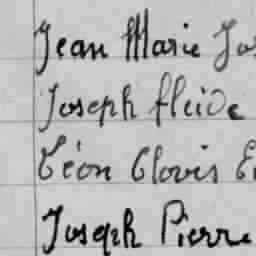 Jean Marie Jos
Joseph fleide
Léon Clovis E
Joseph Pierre